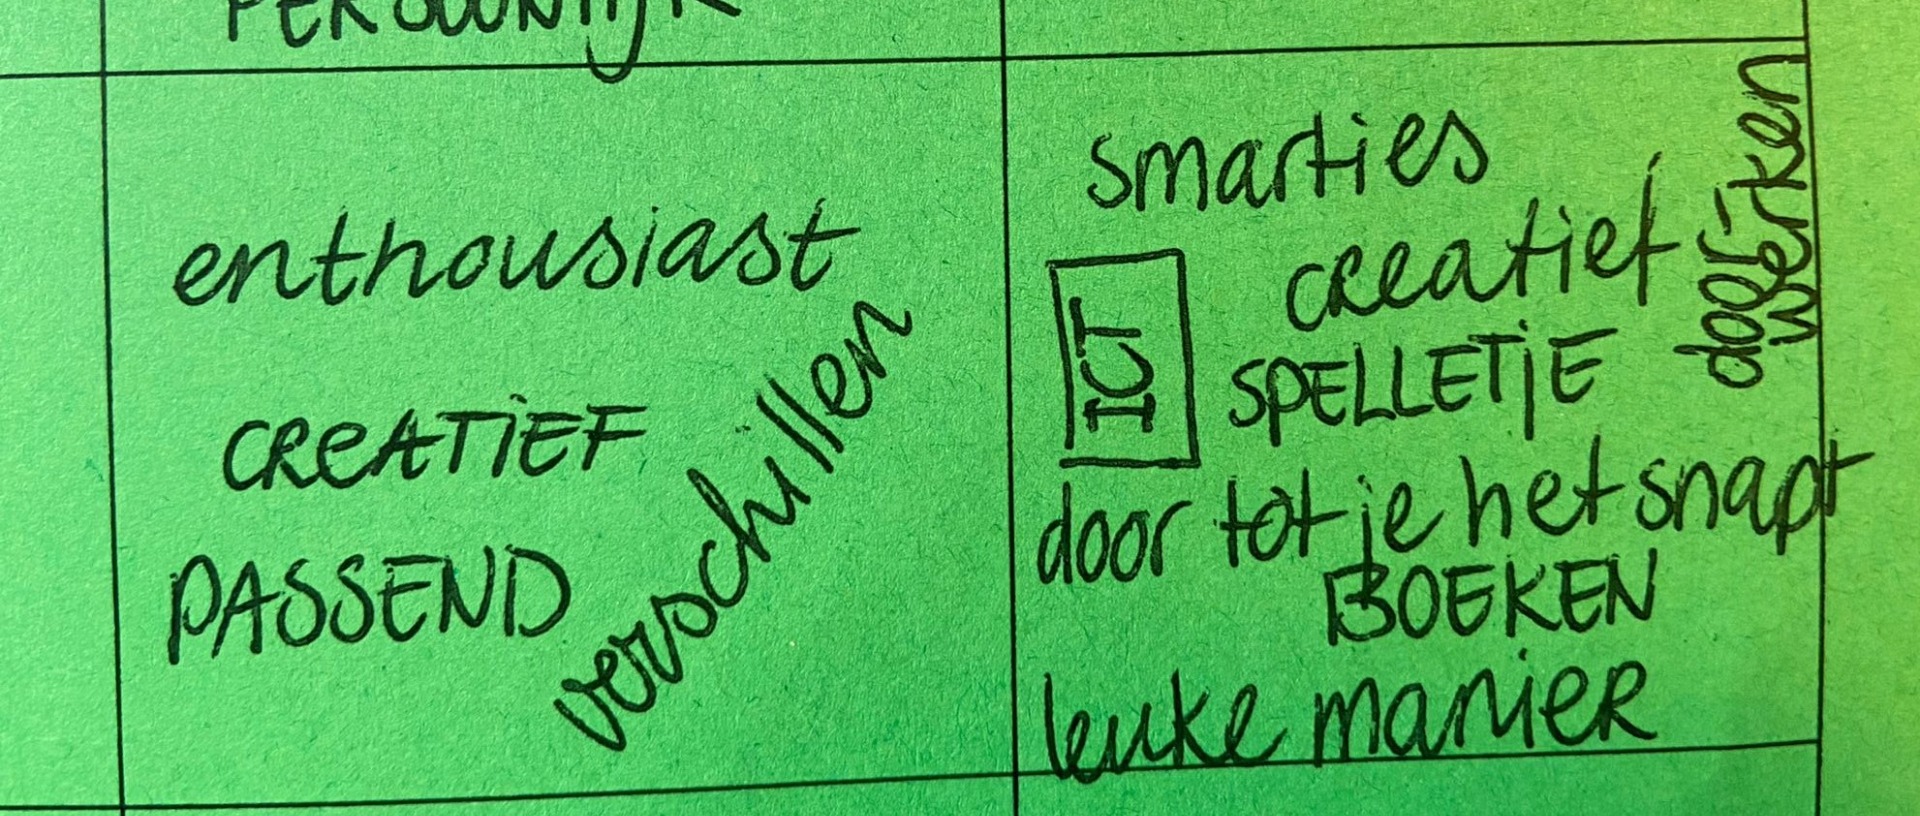 PERSOONlijK
enthousiast
CREATiEF
PASSEND
verschillen
smarties
creatief
ICT
SPELLETjE
door tot je het snapt
BOEKEN
leuke manieR
door-
werken